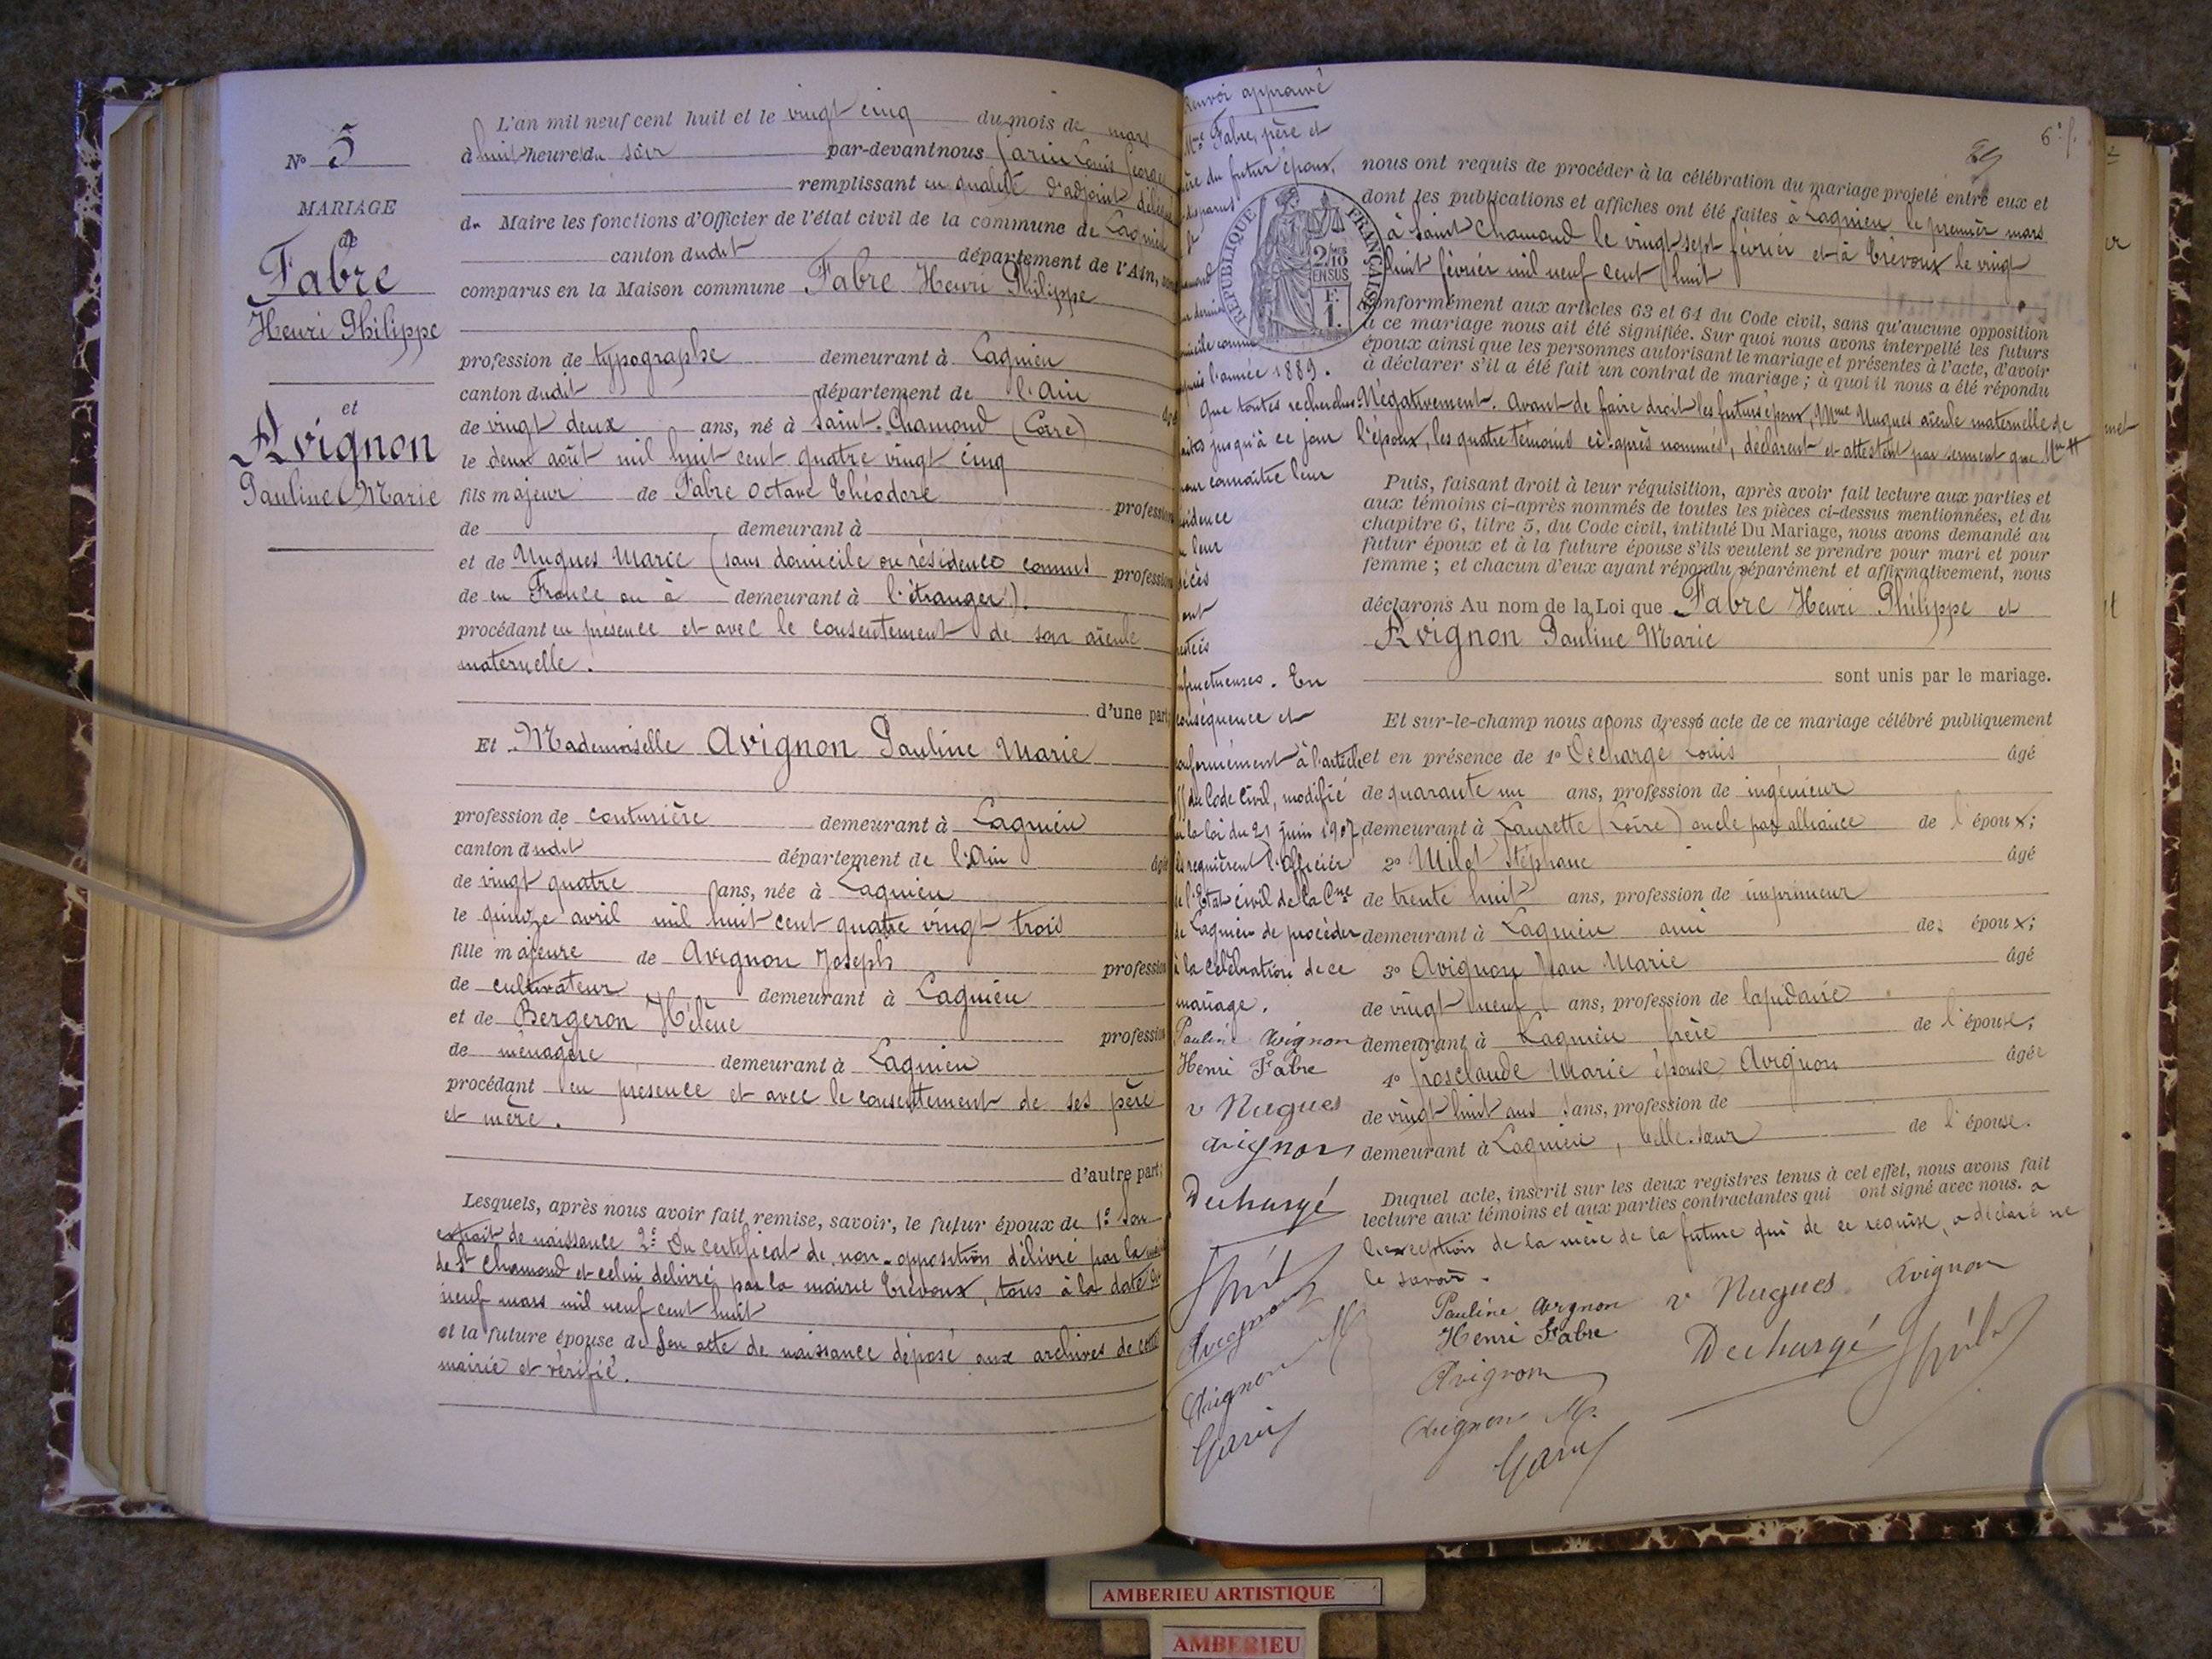 N° 5
MARIAGE
de
Fabre
Henri Philippe
et
Avignon
Pauline Marie
L'an mil neuf cent huit et le vingt cinq du mois de mars
à huit heure du soir par-devant nous Garin Louis Georges
remplissant en qualité d'adjoint délégué
du Maire les fonctions d'Officier de l'état civil de la commune de Lagnieu
canton dudit département de l'Ain,
comparus en la Maison commune Fabre Henri Philippe
profession de typographe demeurant à Lagnieu
canton dudit département de l'Ain
de vingt deux ans, né à Saint-Chamond (Loire)
le deux août mil huit cent quatre vingt cinq
fils majeur de Fabre Octave Théodore profession
de demeurant à
et de Nugues Marie (sans domicile ou résidence connus profession
de en France ou à demeurant à l'étranger).
procédant en présence et avec le consentement de son aïeule
maternelle.
d'une part
Et Mademoiselle Avignon Pauline Marie
profession de couturière demeurant à Lagnieu
canton dudit département de l'Ain âgée
de vingt quatre ans, née à Lagnieu
le quinze avril mil huit cent quatre vingt trois
fille majeure de Avignon Joseph profession
de cultivateur demeurant à Lagnieu
et de Bergeron Hélène profession
de ménagère demeurant à Lagnieu
procédant en présence et avec le consentement de ses père
et mère.
d'autre part:
Lesquels, après nous avoir fait remise, savoir, le futur époux de 1° Son
extrait de naissance 2° Du certificat de non-opposition délivré par la mairie
de St Chamond et celui délivré par la mairie Trévoux, tous à la date du
neuf mars mil neuf cent huit
et la future épouse de Son acte de naissance déposé aux archives de cette
mairie et vérifié.
Renvoi approuvé
Mme Fabre, père et
mère du futur époux,
depuis l'année 1889.
Que toutes recherches
faites jusqu'à ce jour
pour connaître leur
résidence
leur
décès
ont
restées
infructueuses. En
conséquence et
conformément à l'article
du Code Civil, modifié
par la loi du 21 juin 1907,
ils requièrent l'officier
de l'Etat civil de la Cne
de Lagnieu de procéder
à la célébration de ce
mariage.
Pauline Avignon
Henri Fabre
v Nugues
Avignon
Dechargé
Avignon
Avignon M
Garin
6e f.
nous ont requis de procéder à la célébration du mariage projeté entre eux et
dont les publications et affiches ont été faites à Lagnieu le premier mars
à Saint Chamond le vingt sept février et à Trévoux le vingt
huit février mil neuf cent huit
RÉPUBLIQUE FRANÇAISE
2/10
EN SUS
Conformément aux articles 63 et 64 du Code civil, sans qu'aucune opposition
à ce mariage nous ait été signifiée. Sur quoi nous avons interpellé les futurs
époux ainsi que les personnes autorisant le mariage et présentes à l'acte, d'avoir
à déclarer s'il a été fait un contrat de mariage; à quoi il nous a été répondu
Négativement. Avant de faire droit les futurs époux, Mme Nugues aïeule maternelle de
l'époux, les quatre témoins ci-après nommés, déclarent et attestent par serment que Mr et
Puis, faisant droit à leur réquisition, après avoir fait lecture aux parties et
aux témoins ci-après nommés de toutes les pièces ci-dessus mentionnées, et du
chapitre 6, titre 5, du Code civil, intitulé Du Mariage, nous avons demandé au
futur époux et à la future épouse s'ils veulent se prendre pour mari et pour
femme; et chacun d'eux ayant répondu séparément et affirmativement, nous
déclarons Au nom de la Loi que Fabre Henri Philippe et
Avignon Pauline Marie
sont unis par le mariage.
Et sur-le-champ nous avons dressé acte de ce mariage célébré publiquement
et en présence de 1° Decharge Louis âgé
de quarante un ans, profession de ingénieur
demeurant à Laurette (Loire) oncle par alliance de l'époux;
2° Milot Stéphane âgé
de trente huit ans, profession de imprimeur
demeurant à Lagnieu ami de époux;
3° Avignon Jean Marie âgé
de vingt neuf ans, profession de lapidaire
demeurant à Lagnieu frère de l'épouse;
4° Grosclaude Marie épouse Avignon âgée
de vingt huit ans ans, profession de
demeurant à Lagnieu, belle-sœur de l'épouse.
Duquel acte, inscrit sur les deux registres tenus à cet effet, nous avons fait
lecture aux témoins et aux parties contractantes qui ont signé avec nous. a
l'exception de la mère de la future qui de ce requise, a déclaré ne
le savoir.
Pauline Avignon v Nugues Avignon
Henri Fabre Dechargé
Avignon
Avignon M.
Garin
AMBERIEU ARTISTIQUE
AMBERIEU